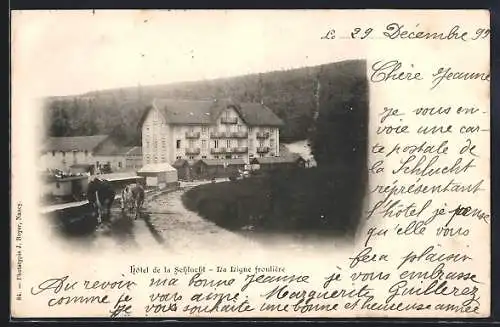 Le 29 Décembre 99
Chère Jeanne
je vous en-
voie une car-
te postale de
la Schlucht
représentant
l'hôtel je pense
qu'elle vous
fera plaisir
Hôtel de la Schlucht - La Ligne frontière
Au revoir ma bonne Jeanne je vous embrasse
comme je vous aime. Marguerite Guillerez
Je vous souhaite une bonne et heureuse année
84. - Phototypie J. Royer, Nancy.